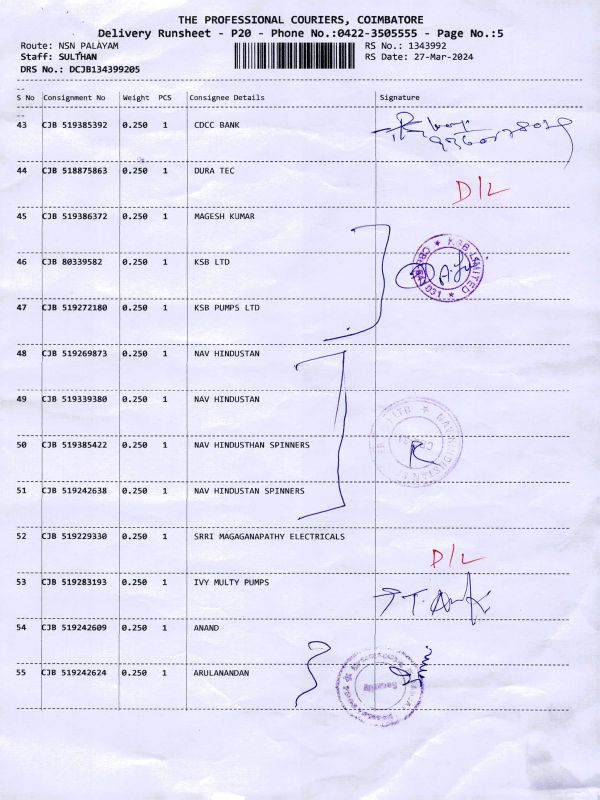 THE PROFESSIONAL COURIERS, COIMBATORE
Delivery Runsheet - P20 - Phone No.:0422-3505555 - Page No.:5
Route: NSN PALAYAM RS No.: 1343992
Staff: SULTHAN RS Date: 27-Mar-2024
DRS No.: DCJB134399205
S No Consignment No Weight PCS Consignee Details Signature
43 CJB 519385392 0.250 1 CDCC BANK
44 CJB 518875863 0.250 1 DURA TEC
D/L
45 CJB 519386372 0.250 1 MAGESH KUMAR
46 CJB 80339582 0.250 1 KSB LTD
KSB LIMITED
47 CJB 519272180 0.250 1 KSB PUMPS LTD
48 CJB 519269873 0.250 1 NAV HINDUSTAN
49 CJB 519339380 0.250 1 NAV HINDUSTAN
50 CJB 519385422 0.250 1 NAV HINDUSTHAN SPINNERS
51 CJB 519242638 0.250 1 NAV HINDUSTAN SPINNERS
52 CJB 519229330 0.250 1 SRRI MAGAGANAPATHY ELECTRICALS
D/L
53 CJB 519283193 0.250 1 IVY MULTY PUMPS
54 CJB 519242609 0.250 1 ANAND
55 CJB 519242624 0.250 1 ARULANANDAN